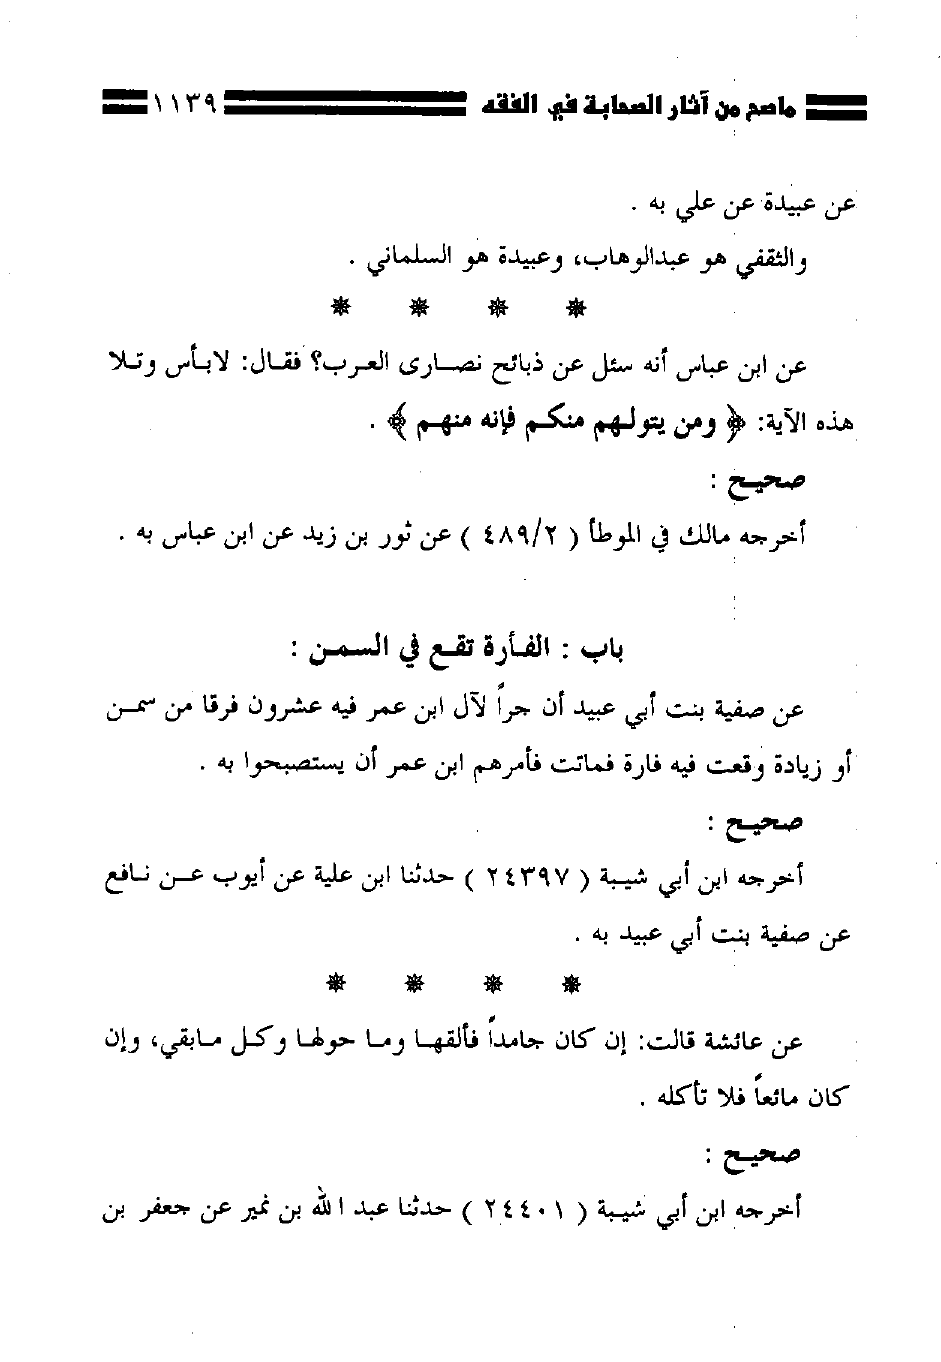 ماصح من آثار الصحابة في الفقه ١١٣٩
عن عبيدة عن علي به .
والثقفي هو عبدالوهاب، وعبيدة هو السلماني .
عن ابن عباس أنه سئل عن ذبائح نصارى العرب؟ فقال: لابأس وتلا
هذه الآية: ﴿ ومن يتولهم منكم فإنه منهم ﴾ .
صحيح :
أخرجه مالك في الموطأ ( ٤٨٩/٢ ) عن ثور بن زيد عن ابن عباس به .
باب : الفأرة تقع في السمن :
عن صفية بنت أبي عبيد أن جراً لآل ابن عمر فيه عشرون فرقا من سمن
أو زيادة وقعت فيه فارة فماتت فأمرهم ابن عمر أن يستصبحوا به .
صحيح :
أخرجه ابن أبي شيبة ( ٢٤٣٩٧ ) حدثنا ابن علية عن أيوب عن نافع
عن صفية بنت أبي عبيد به .
عن عائشة قالت: إن كان جامداً فألقها وما حولها وكل مابقي، وإن
كان مائعاً فلا تأكله .
صحيح :
أخرجه ابن أبي شيبة ( ٢٤٤٠١ ) حدثنا عبد الله بن نمير عن جعفر بن